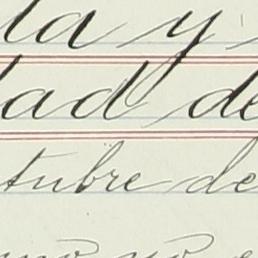 la y
dad de
tubre de